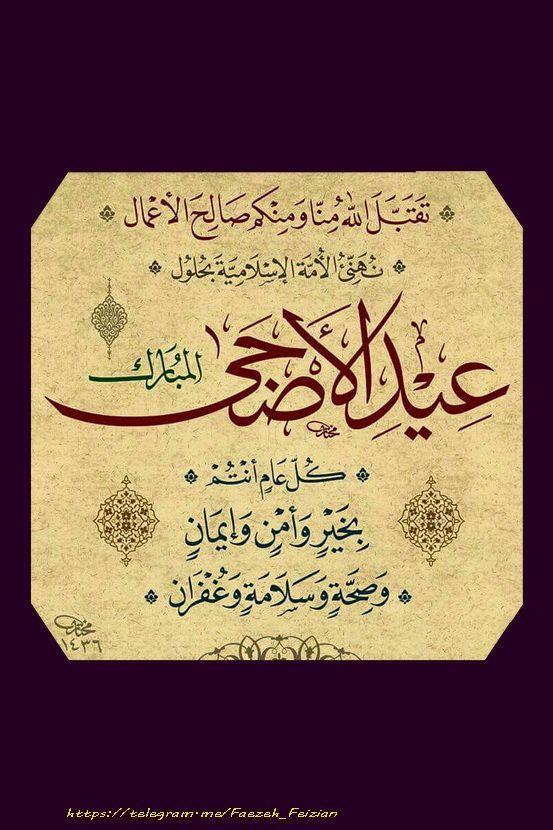 تَقَبَّلَ اللهُ مِنّا وَمِنْكُم صَالِحَ الأَعْمال
نُهَنِّئُ الأُمَّةَ الإِسْلامِيَّةَ بِحُلُول
عِيْدِ الأَضْحَى المُبَارَك
كُلّ عَامٍ أَنْتُمْ
بِخَيْرٍ وَأَمْنٍ وَإيمَانٍ
وَصِحَّةٍ وَسَلَامَةٍ وَغُفْرَان
١٤٣٦
https://telegram.me/Faezeh_Feizian